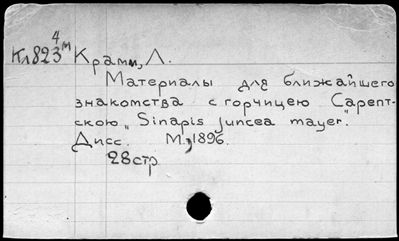 4
Кл823м Крамм, Л.
Материалы для ближайшего
знакомства с горчицею "Сарепт-
скою" Sinapis juncea mayer".
Дисс. М., 1896.
28стр